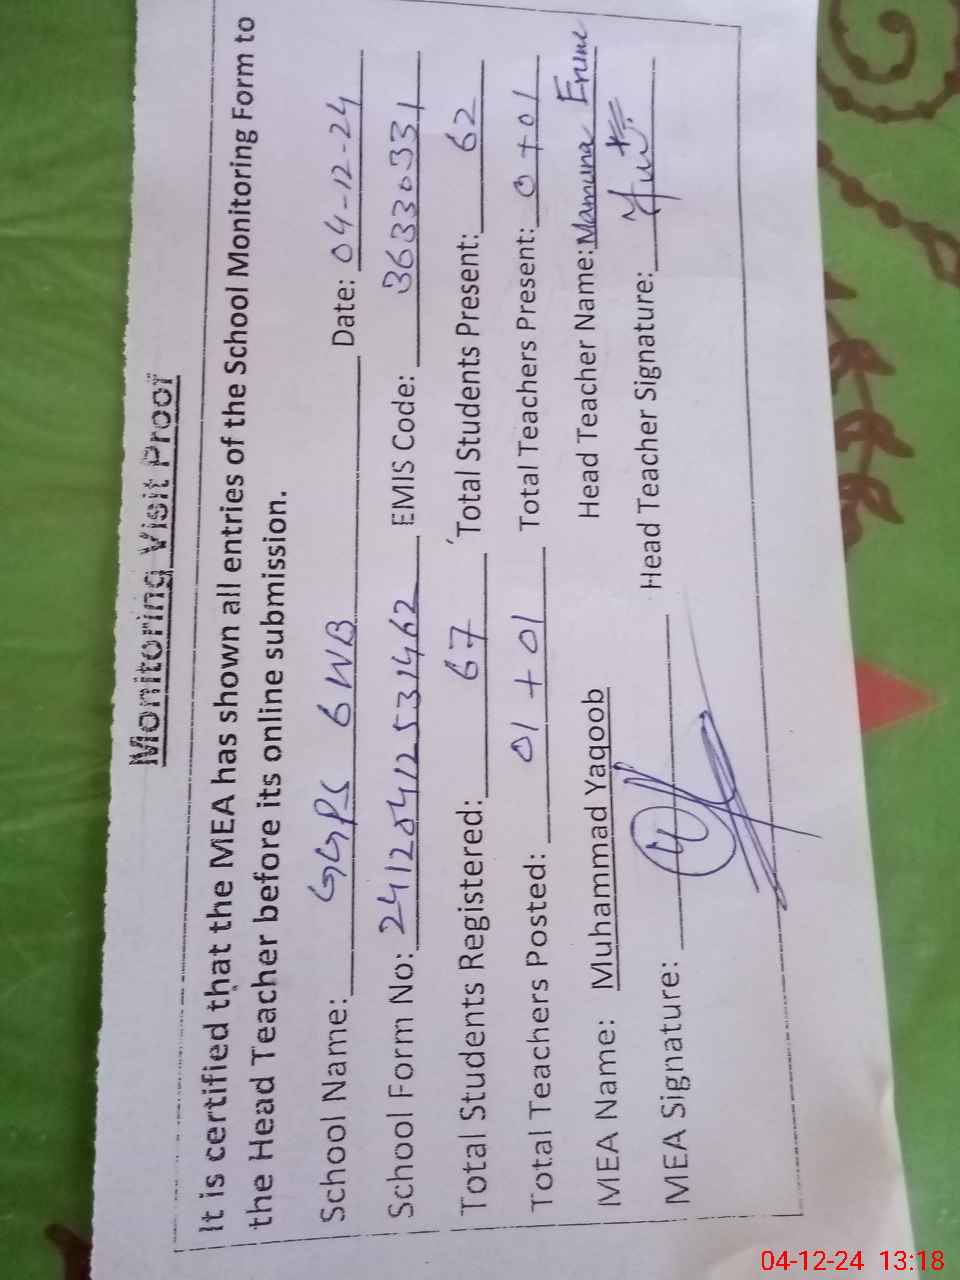 Monitoring Visit Proof
It is certified that the MEA has shown all entries of the School Monitoring Form to
the Head Teacher before its online submission.
School Name: GGPS 6 WB Date: 04-12-24
School Form No: 241204125331462 EMIS Code: 36333031
Total Students Registered: 67 Total Students Present: 62
Total Teachers Posted: 01 + 01 Total Teachers Present: 0 + 01
MEA Name: Muhammad Yaqoob Head Teacher Name: Mamuna
MEA Signature: Head Teacher Signature:
04-12-24 13:18